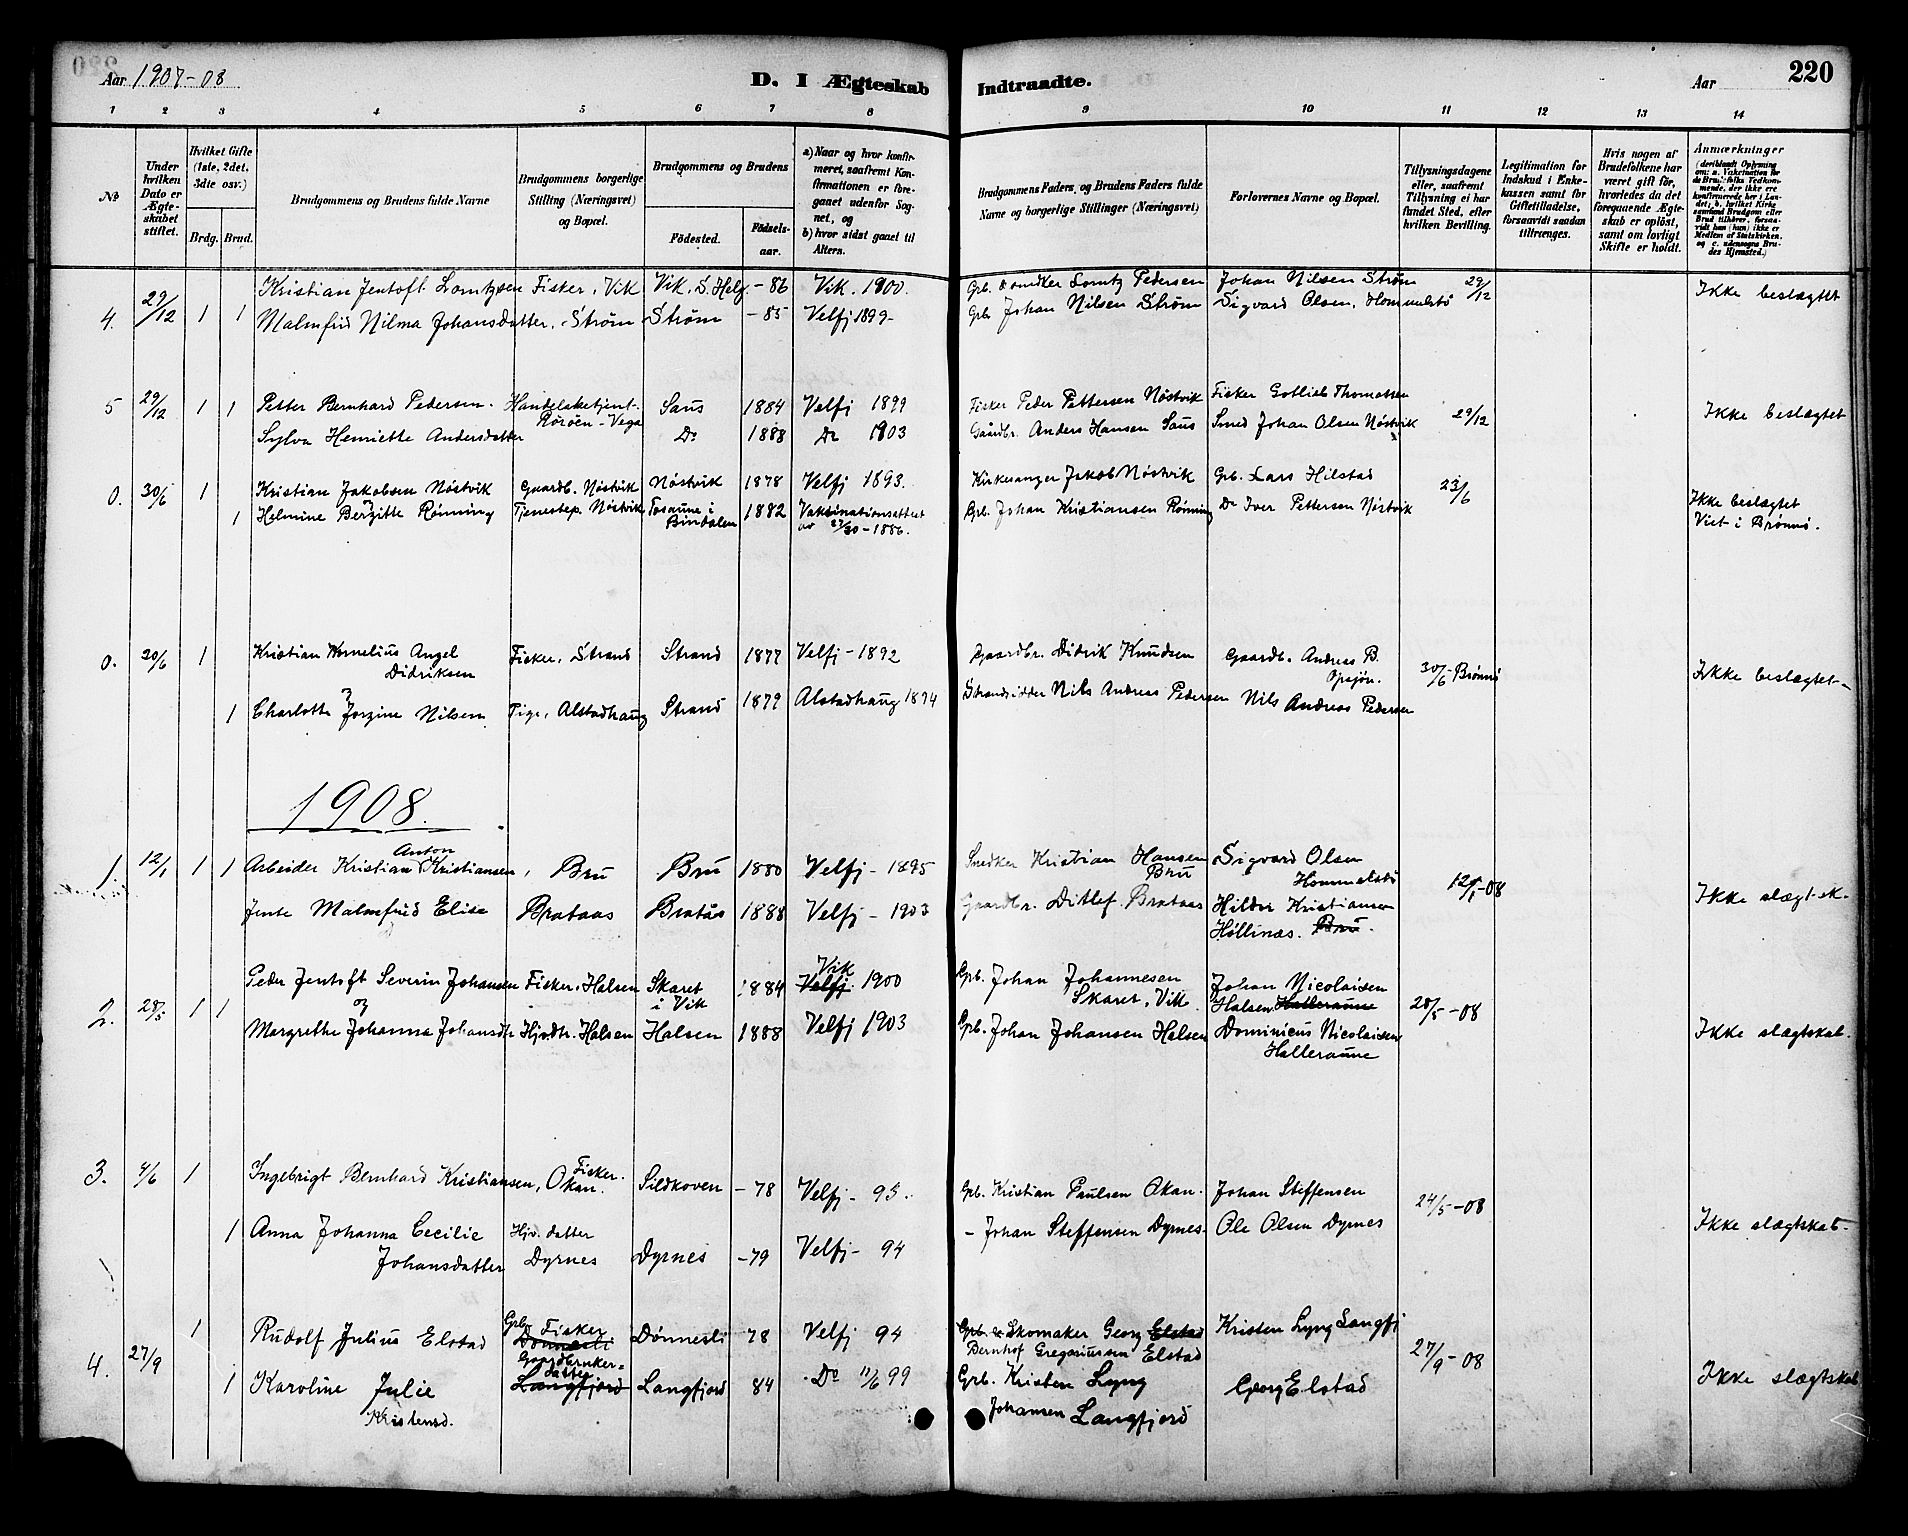 Aar 1907-08
D. I Ægteskab
Indtraadte.
Aar
220
1 2 3 4 5 6 7 8 9 10 11 12 13 14
No
Under hvilken Dato er Ægteskabet stiftet.
Hvilket Gifte (1ste, 2det, 3die osv.)
Brdg. Brud.
Brudgommens og Brudens fulde Navne
Brudgommens borgerlige Stilling (Næringsvei) og Bopæl.
Brudgommens og Brudens
Fødested.
Fødsels-aar.
a) Naar og hvor konfirmeret, saafremt Konfirmationen er foregaaet udenfor Sognet, og
b) hvor sidst gaaet til Alters.
Brudgommens Faders og Brudens Faders fulde Navne og borgerlige Stillinger (Næringsvei)
Forlovernes Navne og Bopæl.
Tillysningsdagene eller, saafremt Tillysning ei har fundet Sted, efter hvilken Bevilling.
Legitimation for Indskud i Enkekassen samt for Giftetilladelse, forsaavidt saadan tiltrænges.
Hvis nogen af Brudefolkene har været gift før, hvorledes da det foregaaende Ægteskab er opløst, samt om lovligt Skifte er holdt.
Anmærkninger
4. 29/12 1 1 Kristian Jentoft Lorntzsen Fisker, Vik Vik, S. Helg. -86 Vik. 1900. Grb. Lorntz Pedersen Johan Nilsen Strøm 29/12 Ikke beslægtet
Malmfrid Nilma Johansdatter, Strøm Strøm -85 Velfj 1899- Grb Johan Nilsen Strøm Sigvard Olsen, Hommelstø
5 29/12 1 1 Petter Bernhard Pedersen. Handelsbetjent. Rørøen - Vega Saus 1884 Velfj 1899 Fisker Peder Pettersen Nøstvik Fisker Gotlieb Thomassen 29/12 Ikke beslægtet
Sylva Henriette Andersdatter Do 1888 Do 1903 Gaardbr. Anders Hansen Saus Smed Johan Olsen Nøstvik
0. 30/6 1 Kristian Jakobsen Nøstvik Gaardb. Nøstvik Nøstvik 1878 Velfj 1893. Kirkesanger Jakob Nøstvik Grb. Lars Hilstad 23/6 Ikke beslægtet
og
1 Helmine Bergitte Rønning Tjenestep. Nøstvik Tosaune i Bindalen 1882 Vaksinationsattest av 29/30-1886. Grb. Johan Kristiansen Rønning Do Iver Pettersen Nøstvik Viet i Brønnø.
0. 20/6 1 Kristian Kornelius Angel Didriksen Fisker, Strand Strand 1877 Velfj - 1892 Gaardbr. Didrik Knudsen Gaardb. Andreas B. Opsjøn. 30/6 Brønnø Ikke beslægtet-
og
1 Charlotte Jorgine Nilsen Pige, Alstadhaug Strand 1879 Alstadhaug 1894 Strandsidder Nils Andreas Pedersen Nils Andreas Pedersen
1908.
1. 12/1 1 1 Arbeider Kristian Anton Kristiansen, Bru Bru 1880 Velfj - 1895 Snedker Kristian Hansen Bru Sigvard Olsen Hommelstø 12/1-08 Ikke slægtsk.
Jente Malmfrid Elise Brataas Bratås 1888 Velfj - 1903 Gaardbr. Ditlef Brataas Hildor Kristiansen Høllinæs. Bru.
2. 28/5 1 1 Peder Jentoft Severin Johansen Fisker, Halsen Skaret i Vik 1884 Vik Velfj. 1900 Grb. Johan Johannesen Skaret, Vik Johan Nicolaisen Halsen Halleraune 28/5-08 Ikke slægtskab.
og
Margrethe Johanna Johansdtr Hjvdtr. Halsen Halsen 1888 Velfj 1903 Grb. Johan Johansen Halsen Dominicus Nicolaisen Halleraune
3. 4/6 1 Ingebrigt Bernhard Kristiansen, Fisker. Okan. Sildkoven -78 Velfj - 95. Grb. Kristian Paulsen Okan. Johan Steffensen 24/5-08 Ikke slægtskab-
1 Anna Johanna Cecilie Johansdatter Hjv. datter Dyrnes Dyrnes -79 Velfj- 94 - Johan Steffensen Dyrnes. Ole Olsen Dyrnes
4. 27/9 1 Rudolf Julius Elstad Grb. Fisker Dønnesli Dønnesli 78 Velfj 94 Grb. Skomaker Georg Elstad Bernhof Gregoriussen Elstad Kristen Lyng Langfj 27/9-08 Ikke slægtskab
1 Karoline Julie Kristensd. Gaardbruker-datter Langfjord Langfjord 84 Do 11/6 99 Grb. Kristen Lyng Johansen Langfjord Georg Elstad